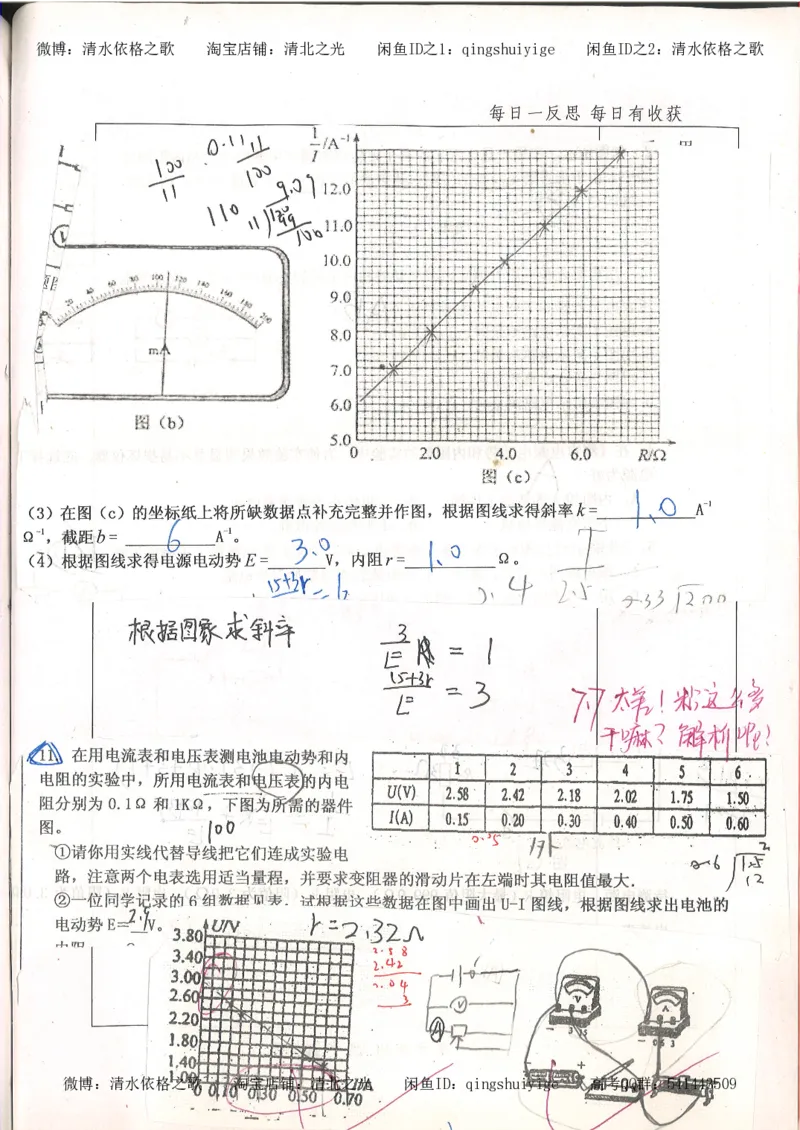 微博：清水依格之歌 淘宝店铺：清北之光 闲鱼ID之1：qingshuiyige 闲鱼ID之2：清水依格之歌
每日一反思 每日有收获
100
11
0.11 11
100
9.09
110
11
100
20 40 60 80 100 120 140 160 180 200
mA
图（b）
1/I /A⁻¹
12.0
11.0
10.0
9.0
8.0
7.0
6.0
5.0
0 2.0 4.0 6.0 R/Ω
图（c）
（3）在图（c）的坐标纸上将所缺数据点补充完整并作图，根据图线求得斜率k=1.0A⁻¹
Ω⁻¹，截距b=6A⁻¹。
（4）根据图线求得电源电动势E=3.0V，内阻r=1.0Ω。
15+3r
2.5
根据图象求斜率
3/E = 1
15+3r/E = 3
11 在用电流表和电压表测电池电动势和内
阻的实验中，所用电流表和电压表的内电
阻分别为 0.1Ω 和 1KΩ，下图为所需的器件
图。
100
1 2 3 4 5 6
U(V) 2.58 2.42 2.18 2.02 1.75 1.50
I(A) 0.15 0.20 0.30 0.40 0.50 0.60
①请你用实线代替导线把它们连成实验电
路，注意两个电表选用适当量程，并要求变阻器的滑动片在左端时其电阻值最大．
②一位同学记录的 6 组数据见表，试根据这些数据在图中画出 U-I 图线，根据图线求出电池的
电动势 E=2.9V。
r=2.32Ω
2.58
2.42
U/V
3.80
3.40
3.00
2.60
2.20
1.80
1.40
1.00
0 0.10 0.30 0.50 0.70
V
A
V
A
微博：清水依格之歌 淘宝店铺：清北之光 闲鱼ID：qingshuiyige